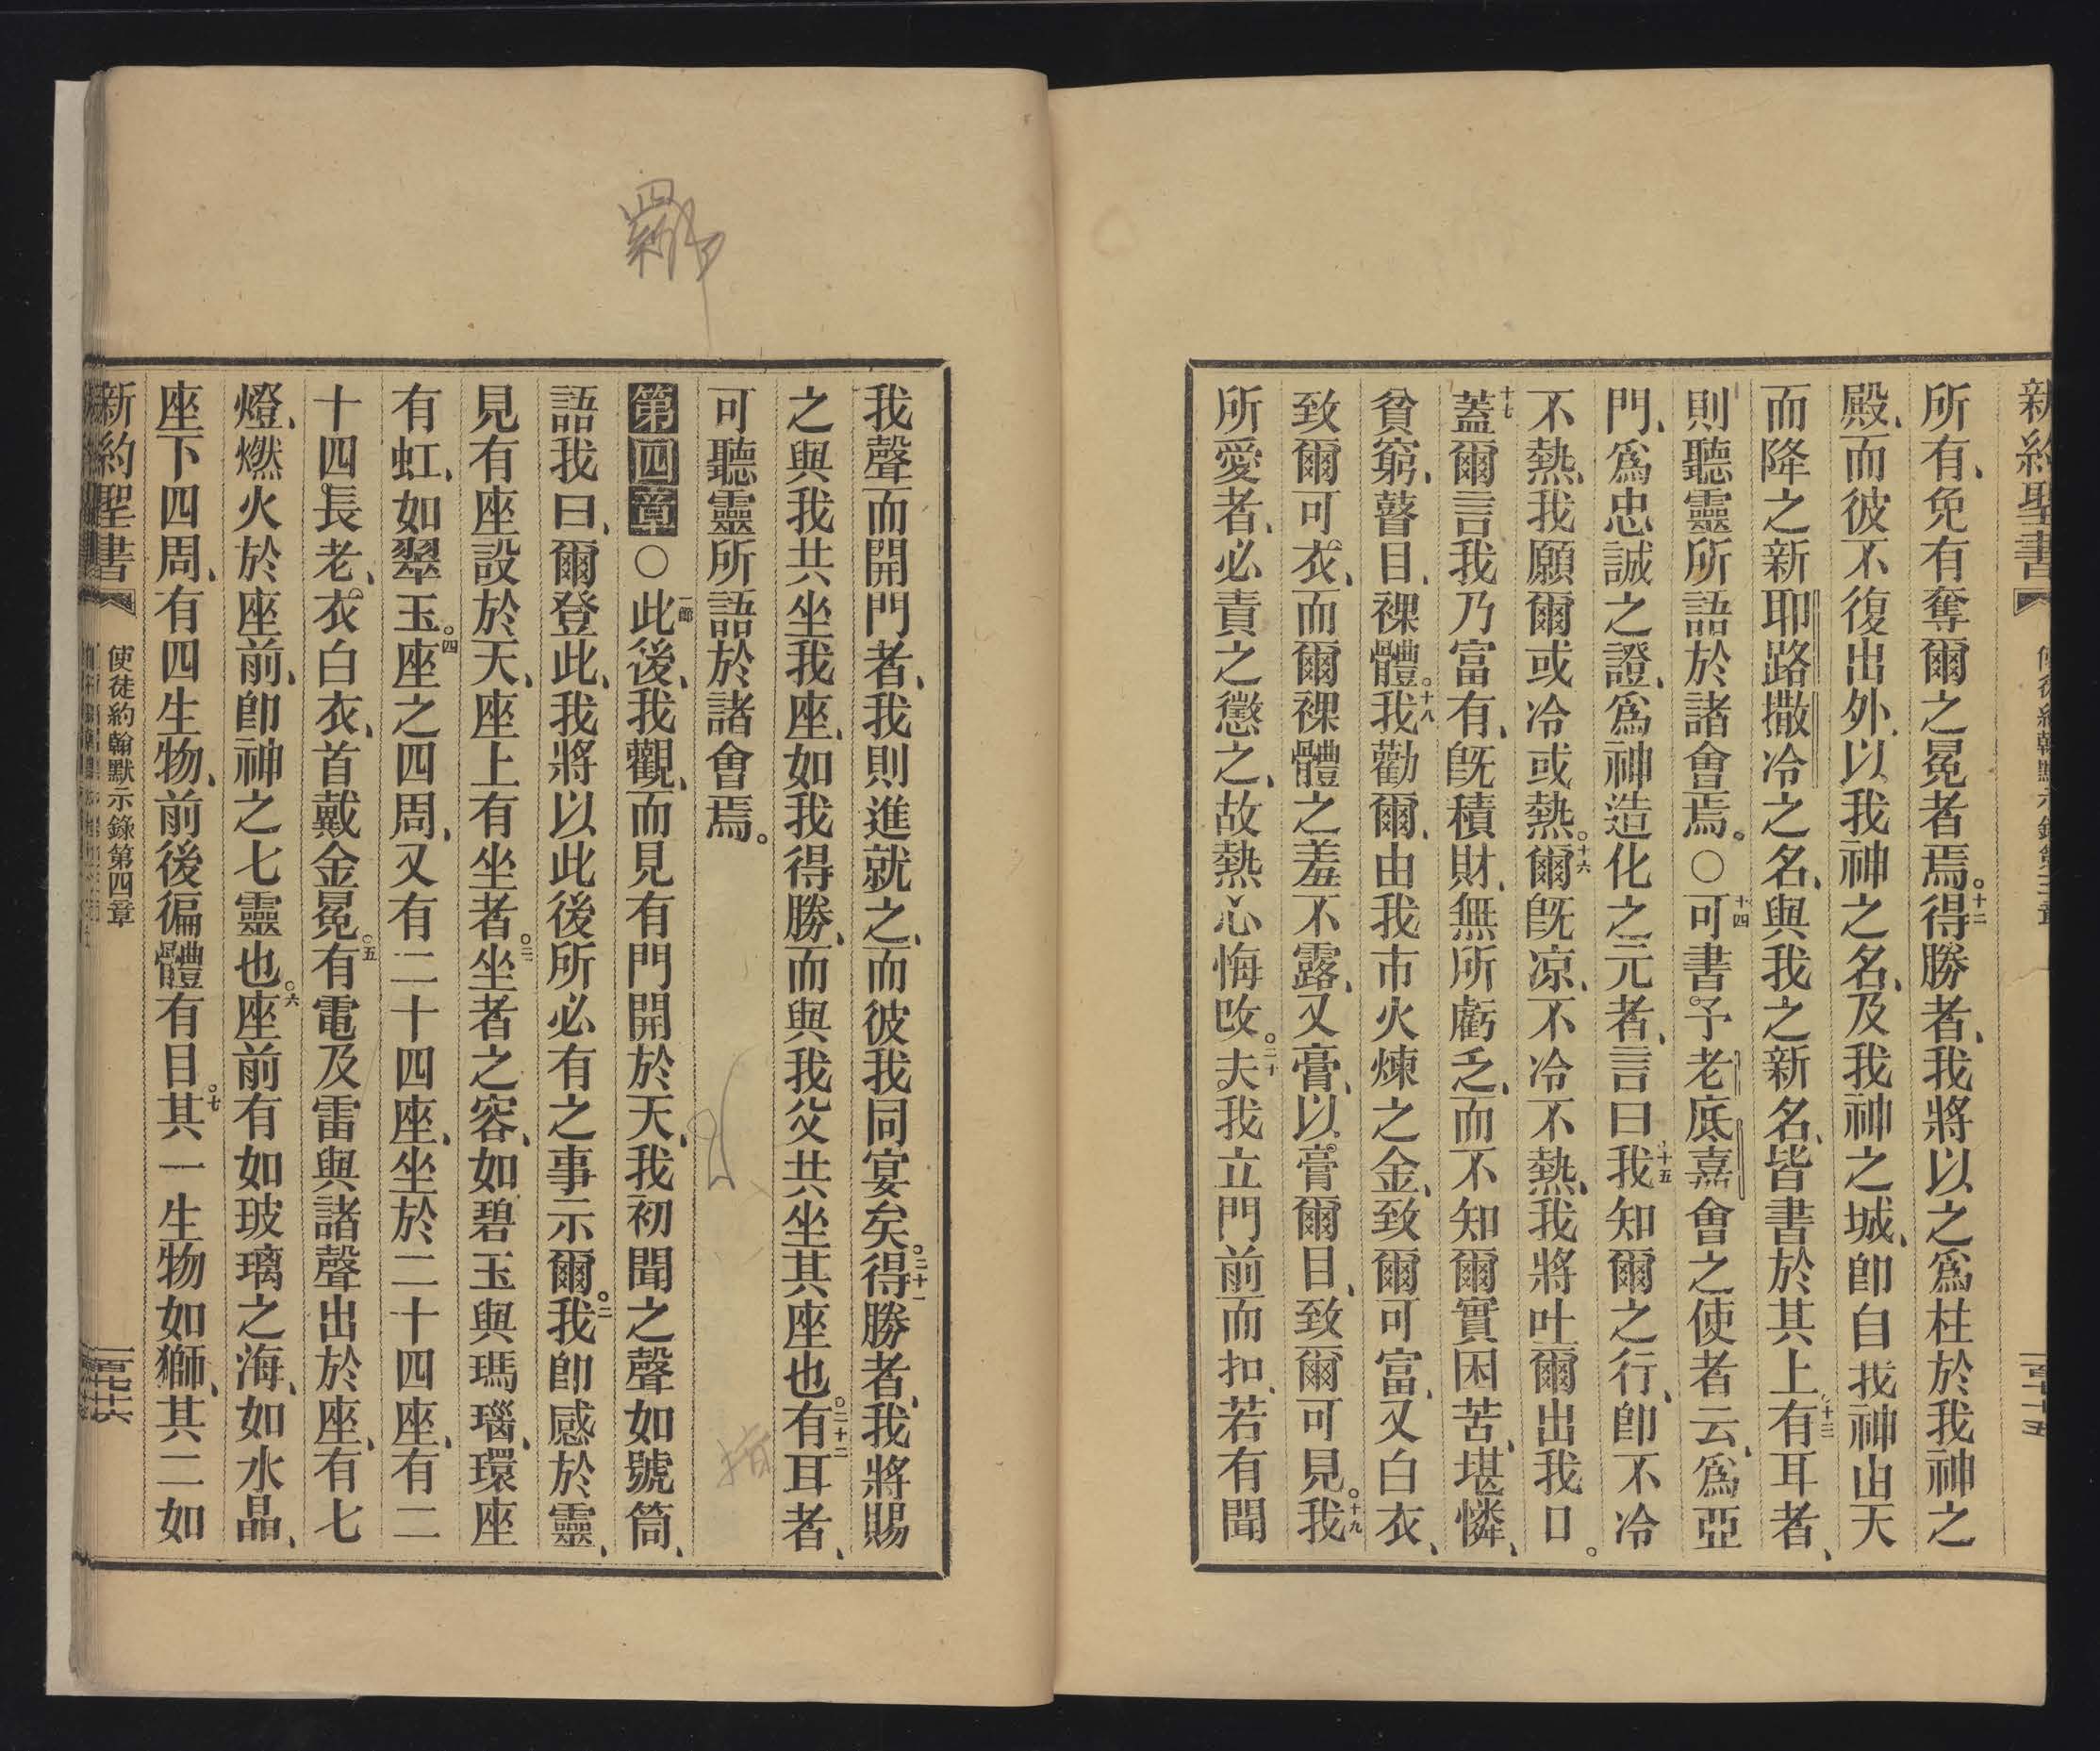 新約聖書
所有、免有奪爾之冕者焉。十二得勝者、我將以之爲柱於我神之
殿、而彼不復出外、以我神之名、及我神之城、卽自我神由天
而降之新耶路撒冷之名、與我之新名、皆書於其上、十三有耳者、
則聽靈所語於諸會焉。○十四可書予老底嘉會之使者云、爲亞
門、爲忠誠之證、爲神造化之元者、言曰、十五我知爾之行、卽不冷
不熱、我願爾或冷或熱。十六爾旣凉、不冷不熱、我將吐爾出我口。
十七蓋爾言我乃富有、旣積財、無所虧乏、而不知爾實困苦、堪憐、
貧窮、瞽目、裸體。十八我勸爾、由我市火煉之金、致爾可富、又白衣、
致爾可衣、而爾裸體之羞不露、又膏、以膏爾目、致爾可見。十九我
所愛者、必責之懲之、故熱心悔改。二十夫我立門前而扣、若有聞
我聲而開門者、我則進就之、而彼我同宴矣。二十一得勝者、我將賜
之與我共坐我座、如我得勝、而與我父共坐其座也。二十二有耳者、
可聽靈所語於諸會焉。
第四章○一節此後、我觀、而見有門開於天、我初聞之聲如號筒、
語我曰、爾登此、我將以此後所必有之事示爾。二我卽感於靈、
見有座設於天、座上有坐者。三坐者之容、如碧玉與瑪瑙、環座
有虹、如翠玉。四座之四周、又有二十四座、坐於二十四座、有二
十四長老、衣白衣、首戴金冕。五有電及雷與諸聲出於座、有七
燈、燃火於座前、卽神之七靈也。六座前有如玻璃之海、如水晶、
座下四周、有四生物、前後徧體有目。七其一生物如獅、其二如
新約聖書 使徒約翰默示錄第四章